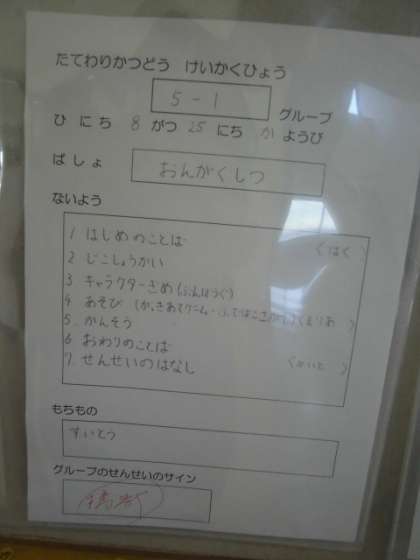 たてわりかつどう けいかくひょう
5-1 グループ
ひにち 8がつ 25にち かようび
ばしょ おんがくしつ
ないよう
1 はじめのことば
2 じこしょうかい
3 キャラクターぎめ(ぶんぼうぐ)
4 あそび
5. かんそう
6 おわりのことば
7. せんせいのはなし
もちもの
すいとう
グループのせんせいのサイン